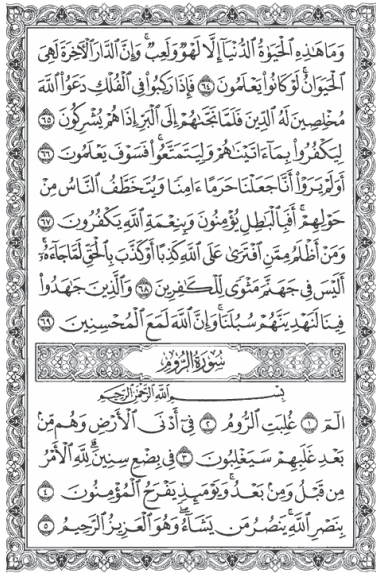 وَمَا هَٰذِهِ ٱلْحَيَوٰةُ ٱلدُّنْيَآ إِلَّا لَهْوٌ وَلَعِبٌ ۚ وَإِنَّ ٱلدَّارَ ٱلْءَاخِرَةَ لَهِىَ
ٱلْحَيَوَانُ ۚ لَوْ كَانُوا۟ يَعْلَمُونَ ٦٤ فَإِذَا رَكِبُوا۟ فِى ٱلْفُلْكِ دَعَوُا۟ ٱللَّهَ
مُخْلِصِينَ لَهُ ٱلدِّينَ فَلَمَّا نَجَّىٰهُمْ إِلَى ٱلْبَرِّ إِذَا هُمْ يُشْرِكُونَ ٦٥
لِيَكْفُرُوا۟ بِمَآ ءَاتَيْنَٰهُمْ وَلِيَتَمَتَّعُوا۟ ۖ فَسَوْفَ يَعْلَمُونَ ٦٦
أَوَلَمْ يَرَوْا۟ أَنَّا جَعَلْنَا حَرَمًا ءَامِنًا وَيُتَخَطَّفُ ٱلنَّاسُ مِنْ
حَوْلِهِمْ ۚ أَفَبِٱلْبَٰطِلِ يُؤْمِنُونَ وَبِنِعْمَةِ ٱللَّهِ يَكْفُرُونَ ٦٧
وَمَنْ أَظْلَمُ مِمَّنِ ٱفْتَرَىٰ عَلَى ٱللَّهِ كَذِبًا أَوْ كَذَّبَ بِٱلْحَقِّ لَمَّا جَآءَهُۥٓ ۚ
أَلَيْسَ فِى جَهَنَّمَ مَثْوًى لِّلْكَٰفِرِينَ ٦٨ وَٱلَّذِينَ جَٰهَدُوا۟
فِينَا لَنَهْدِيَنَّهُمْ سُبُلَنَا ۚ وَإِنَّ ٱللَّهَ لَمَعَ ٱلْمُحْسِنِينَ ٦٩
سُورَةُ الرُّومِ
بِسْمِ ٱللَّهِ ٱلرَّحْمَٰنِ ٱلرَّحِيمِ
الٓمٓ ١ غُلِبَتِ ٱلرُّومُ ٢ فِىٓ أَدْنَى ٱلْأَرْضِ وَهُم مِّنۢ
بَعْدِ غَلَبِهِمْ سَيَغْلِبُونَ ٣ فِى بِضْعِ سِنِينَ ۗ لِلَّهِ ٱلْأَمْرُ
مِن قَبْلُ وَمِنۢ بَعْدُ ۚ وَيَوْمَئِذٍ يَفْرَحُ ٱلْمُؤْمِنُونَ ٤
بِنَصْرِ ٱللَّهِ ۚ يَنصُرُ مَن يَشَآءُ ۖ وَهُوَ ٱلْعَزِيزُ ٱلرَّحِيمُ ٥